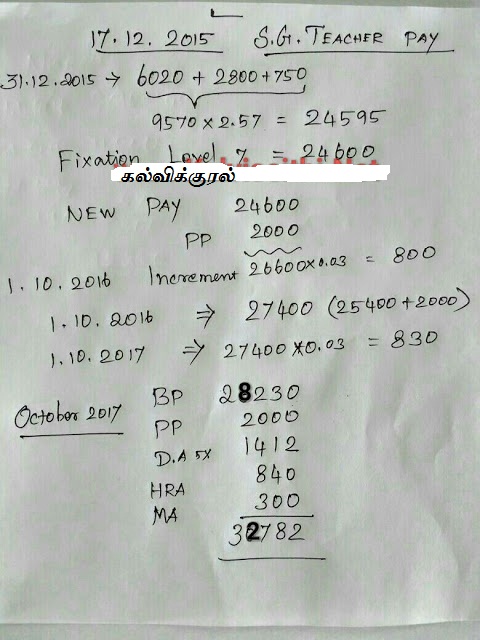 17.12.2015 S.G. TEACHER PAY
31.12.2015 → 6020 + 2800 + 750
9570 × 2.57 = 24595
Fixation Level 7 = 24600
கல்விக்குரல்
NEW PAY 24600
PP 2000
1.10.2016 Increment 26600×0.03 = 800
1.10.2016 ⇒ 27400 (25400 + 2000)
1.10.2017 ⇒ 27400 × 0.03 = 830
October 2017 BP 28230
PP 2000
D.A 5% 1412
HRA 840
MA 300
32782